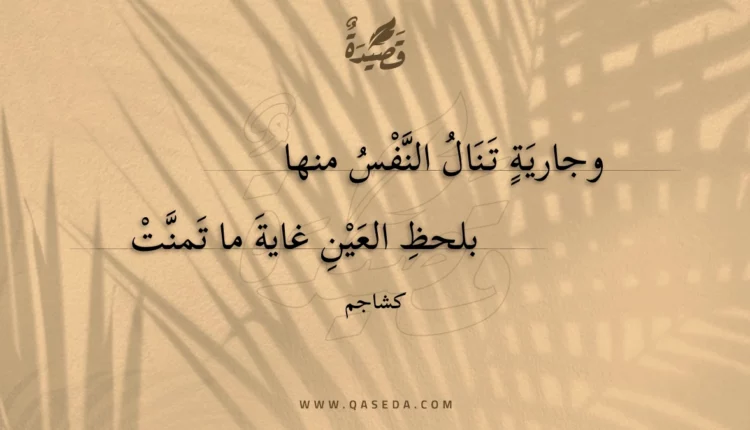 قَصِيْدَةٌ
وجاريَةٍ تَنَالُ النَّفْسُ منها
بلحظِ العَيْنِ غايةَ ما تَمنَّتْ
كشاجم
WWW.QASEDA.COM